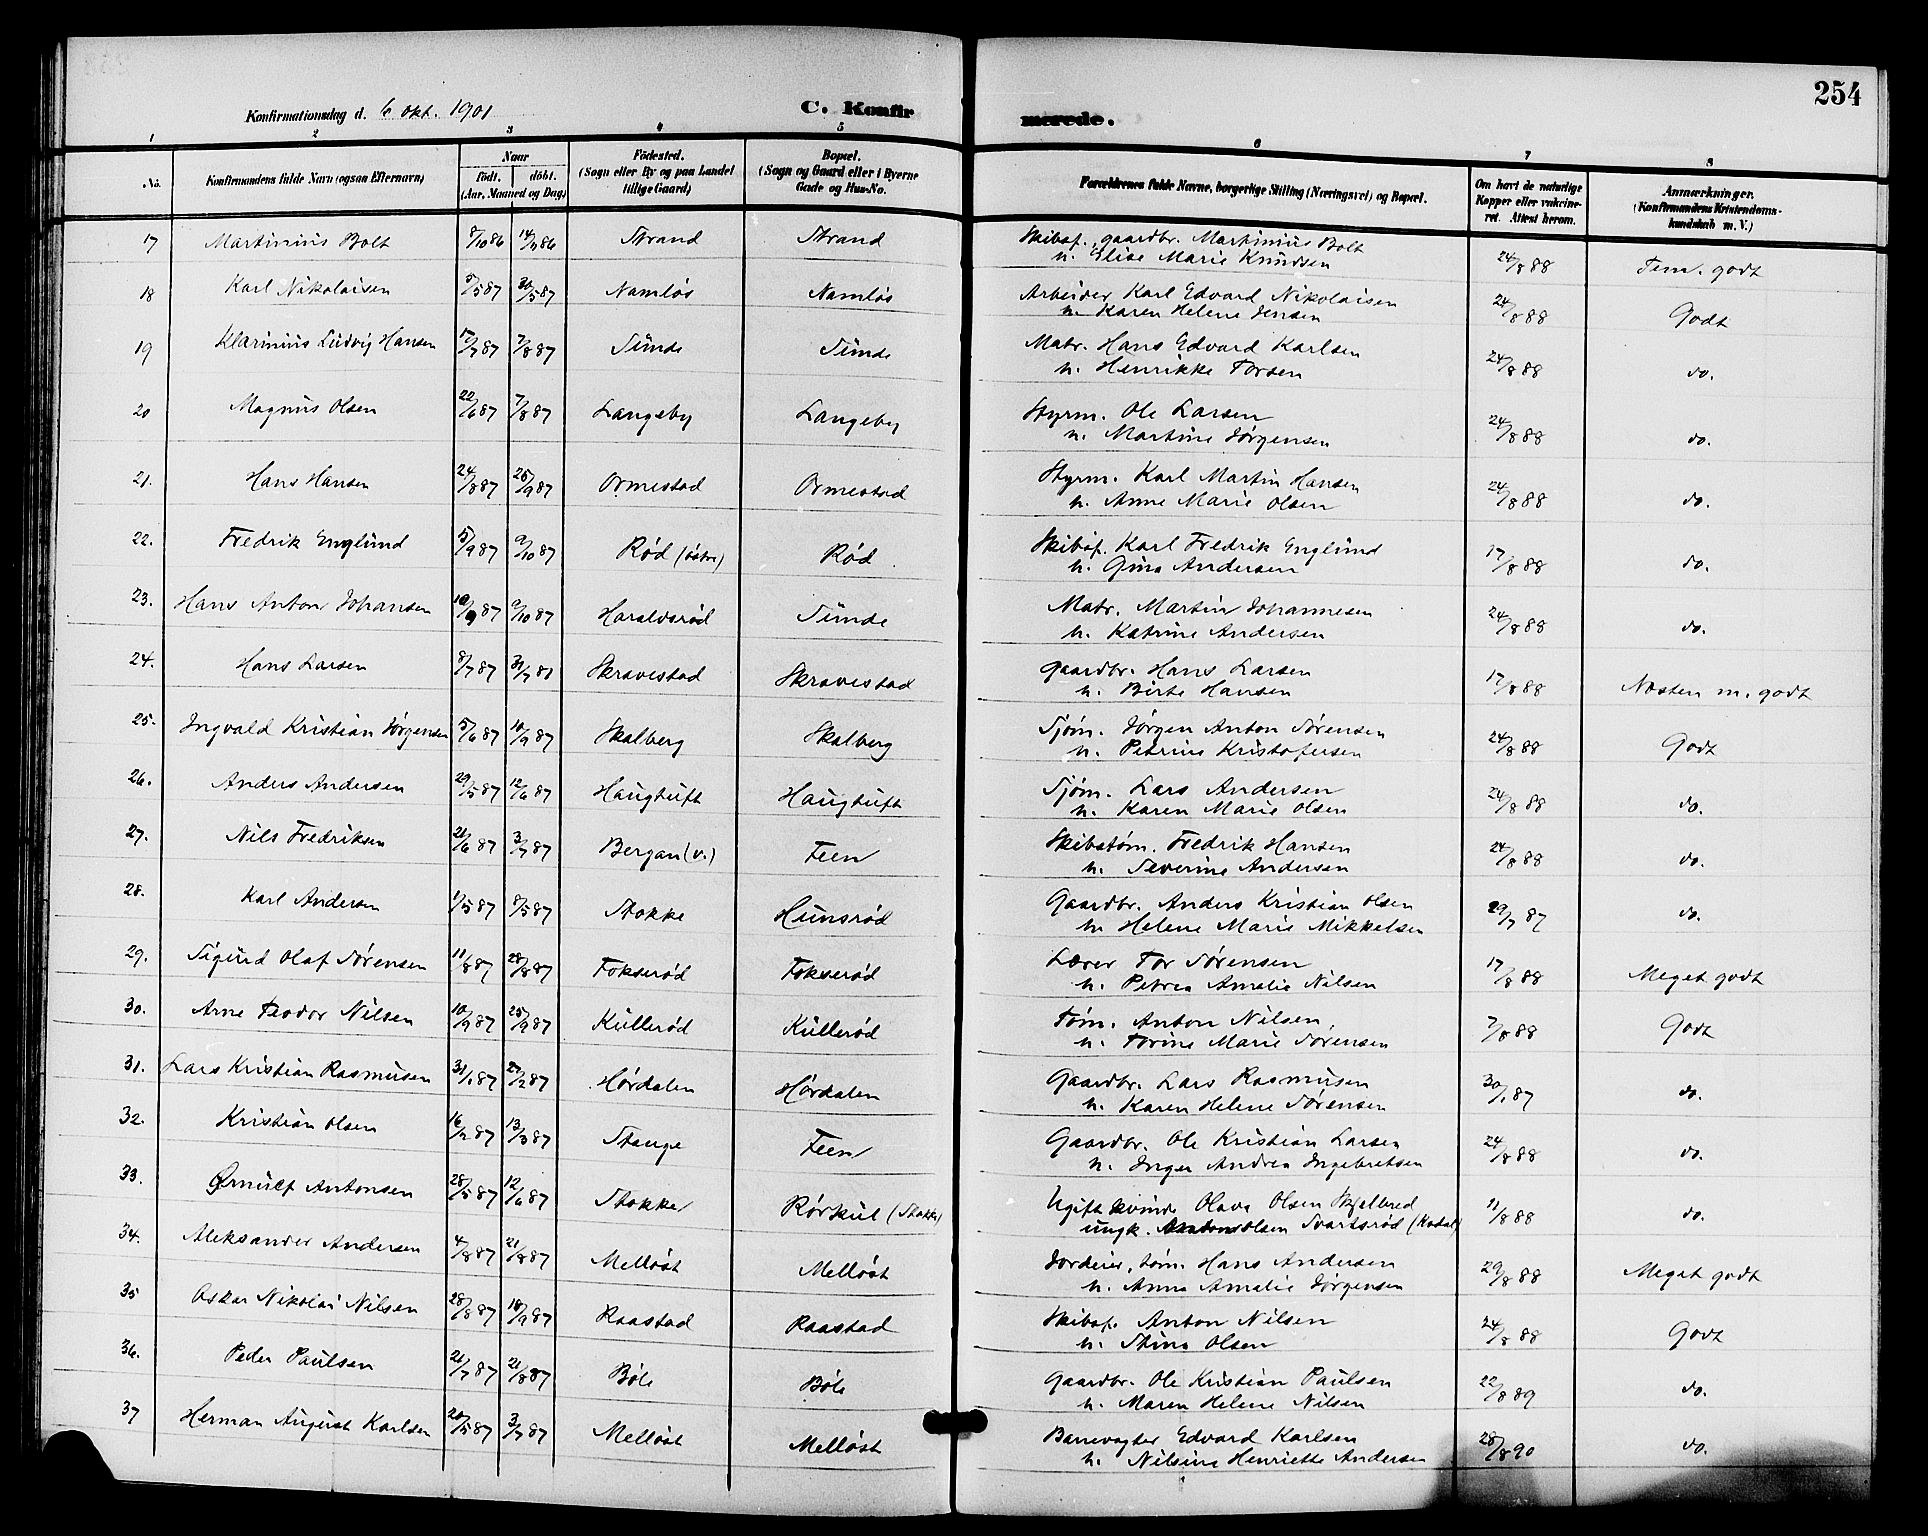 254
Konfirmationsdag d. 6 okt. 1901
C. Konfirmerede.
1 2 3 4 5 6 7 8
No. Konfirmandens fulde Navn (ogsaa Efternavn) Naar födt. döbt. (Aar, Maaned og Dag) Födested. (Sogn eller By og paa Landet tillige Gaard) Bopæl. (Sogn og Gaard eller i Byerne Gade og Hus-No. Forældrenes fulde Navne, borgerlige Stilling (Næringsvei) og Bopæl. Om havt de naturlige Kopper eller vaksineret. Attest herom. Anmærkninger. (Konfirmandens Kristendomskundskab m. V.)
17 Martinius Bolt 8/10 86 14/11 86 Strand Strand Skibsf., gaardbr. Martinius Bolt 24/8 88 Tem. godt
u. Elise Marie Knudsen
18 Karl Nikolaisen 5/5 87 30/5 87 Namløs Namløs Arbeider Karl Edvard Nikolaisen 24/8 88 Godt
u. Karen Helene Jensen
19 Klarinius Ludvig Hansen 17/7 87 7/8 87 Sunde Sunde Matr. Hans Edvard Karlsen 24/8 88 do.
u. Henrikke Torsen
20 Magnus Olsen 22/6 87 7/8 87 Langeby Langeby Styrm. Ole Larsen 24/8 88 do.
u. Martine Jørgensen
21. Hans Hansen 24/8 87 25/9 87 Ormestad Ormestad Styrm. Karl Martin Hansen 24/8 88 do.
u. Anne Marie Olsen
22. Fredrik Englund 5/9 87 9/10 87 Rød (östre) Rød Skibsf. Karl Fredrik Englund 17/8 88 do.
u. Gina Andersen
23. Hans Anton Johansen 10/9 87 9/10 87 Haraldsrød Sunde Matr. Martin Johannesen 24/8 88 do.
u. Katrine Andersen
24. Hans Larsen 8/7 87 31/7 87 Skravestad Skravestad Gaardbr. Hans Larsen 17/8 88 Næsten m. godt
u. Birte Hansen
25. Ingvald Kristian Jørgensen 5/6 87 10/9 87 Skalberg Skalberg Sjøm. Jørgen Anton Sørensen 24/8 88 Godt
u. Petrine Kristofersen
26. Anders Andersen 29/5 87 12/6 87 Haugtuft Haugtuft Sjøm. Lars Andersen 24/8 88 do.
u. Karen Marie Olsen
27. Nils Fredriksen 21/6 87 3/7 87 Bergan (v.) Feen Skibstøm. Fredrik Hansen 24/8 88 do.
u. Severine Andersen
28. Karl Andersen 1/5 87 8/5 87 Stokke Hunsrød Gaardbr. Anders Kristian Olsen 29/7 87 do.
u. Helene Marie Mikkelsen
29. Sigurd Olaf Sørensen 11/8 87 28/8 87 Fokserød Fokserød Lærer Tor Sørensen 17/8 88 Meget godt
u. Petrea Amalie Nilsen
30. Arne Teodor Nilsen 10/9 87 25/9 87 Kullerød Kullerød Tøm. Anton Nilsen, 7/8 88 Godt
u. Torine Marie Sørensen
31. Lars Kristian Rasmusen 31/1 87 27/2 87 Hørdalen Hørdalen Gaardbr. Lars Rasmusen 30/1 87 do.
u. Karen Helene Sørensen
32. Kristian Olsen 16/2 87 13/3 87 Stange Feen Gaardbr. Ole Kristian Larsen 24/8 88 do.
u. Inger Andrea Ingebretsen
33. Ørnulf Antonsen 28/5 87 12/6 87 Stokke Rørkul (Stokke) Ugift kvinde Olava Olsen Skjelbred 11/8 88 do.
ungk. Anton Olsen Svartsrød (Kodal)
34. Aleksander Andersen 4/8 87 21/8 87 Melløst Melløst Jordeier, tøm. Hans Andersen 29/8 88 Meget godt
u. Anna Amalie Jørgensen
35 Oskar Nikolai Nilsen 28/8 87 18/9 87 Raastad Raastad Skibsf. Anton Nilsen 24/8 88 Godt
u. Stina Olsen
36. Peder Paulsen 21/7 87 21/8 87 Bøle Bøle Gaardbr. Ole Kristian Paulsen 22/8 89 do.
u. Maren Helene Nilsen
37 Herman August Karlsen 20/5 87 3/7 87 Melløst Melløst Banevogter Edvard Karlsen 28/8 90 do.
u. Nilsine Henriette Andersen